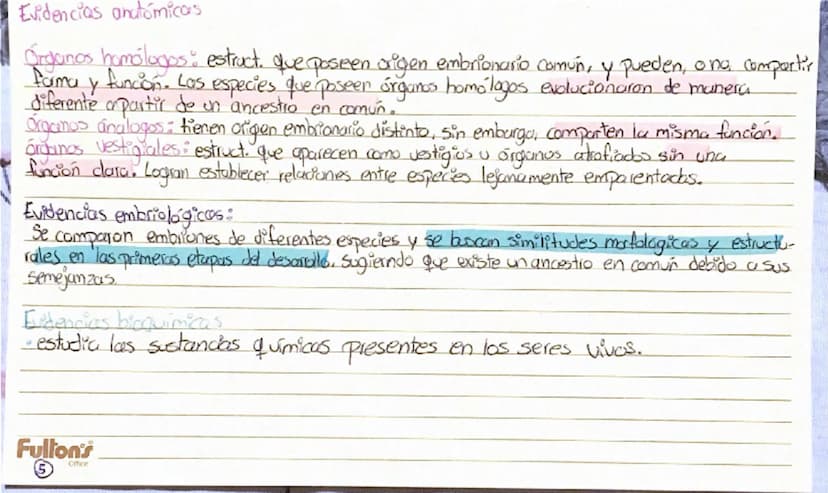 Evidencias anatómicas
Órganos homólogos: estruct. que poseen origen embrionario común, y pueden, o no compartir
forma y función. Las especies que poseen órganos homólogos evolucionaron de manera
diferente a partir de un ancestro en común.
Órganos análogos: tienen origen embrionario distinto, sin embargo, comparten la misma función.
órganos vestigiales: estruct. que aparecen como vestigios u órganos atrofiados sin una
función clara. Logran establecer relaciones entre especies lejanamente emparentadas.
Evidencias embriológicas:
Se comparan embriones de diferentes especies y se buscan similitudes morfologicas y estructu-
rales en las primeras etapas del desarrollo, sugiriendo que existe un ancestro en común debido a sus
semejanzas.
Evidencias bioquímicas
· estudia las sustancias químicas presentes en los seres vivos.
Fulton's
Office
5